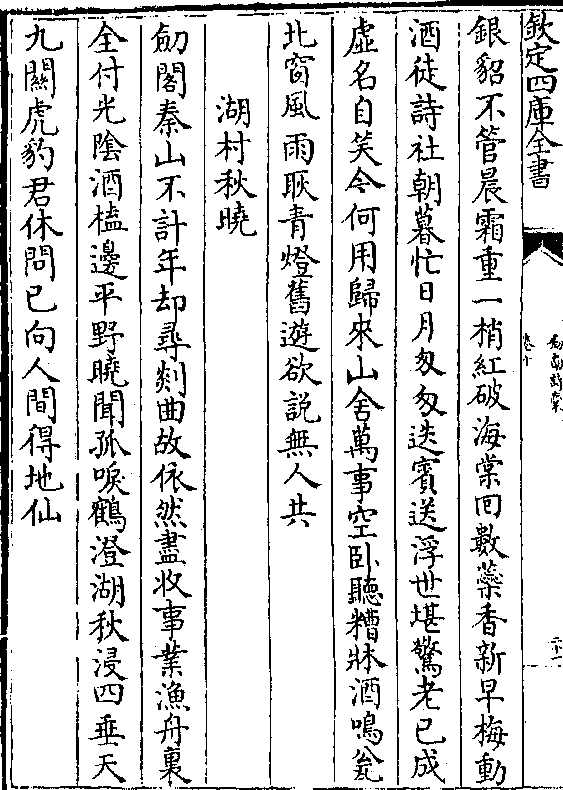 欽定四庫全書
卷十
銀貂不管晨霜重一梢紅破海棠回數蘂香新早梅動
酒徒詩社朝暮忙日月匆匆迭賓送浮世堪驚老已成
虛名自笑今何用歸來山舍萬事空卧聽糟牀酒鳴瓮
北窗風雨耿青燈舊遊欲説無人共
湖村秋曉
劒閣秦山不計年却尋剡曲故依然盡收事業漁舟裏
全付光陰酒榼邊平野曉聞孤唳鶴澄湖秋浸四垂天
九關虎豹君休問已向人間得地仙